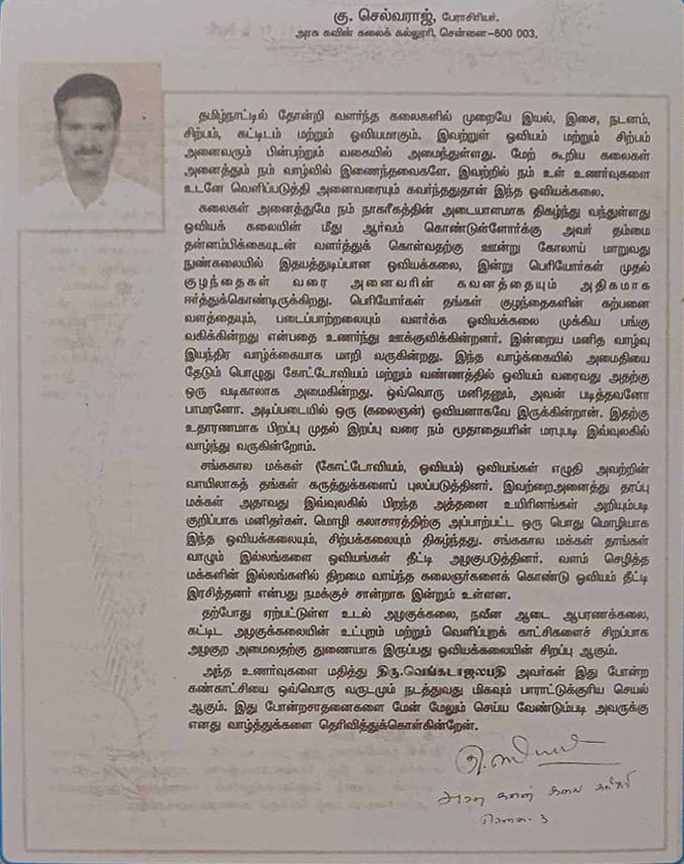 கு. செல்வராஜ், பேராசிரியர்.
அரசு கவின் கலைக் கல்லூரி, சென்னை-600 003.
தமிழ்நாட்டில் தோன்றி வளர்ந்த கலைகளில் முறையே இயல், இசை, நடனம்,
சிற்பம், கட்டிடம் மற்றும் ஓவியமாகும். இவற்றுள் ஓவியம் மற்றும் சிற்பம்
அனைவரும் பின்பற்றும் வகையில் அமைந்துள்ளது. மேற் கூறிய கலைகள்
அனைத்தும் நம் வாழ்வில் இணைந்தவைகளே. இவற்றில் நம் உள் உணர்வுகளை
உடனே வெளிப்படுத்தி அனைவரையும் கவர்ந்ததுதான் இந்த ஓவியக்கலை.
கலைகள் அனைத்துமே நம் நாகரீகத்தின் அடையாளமாக திகழ்ந்து வந்துள்ளது
ஓவியக் கலையின் மீது ஆர்வம் கொண்டுள்ளோர்க்கு அவர் தம்மை
தன்னம்பிக்கையுடன் வளர்த்துக் கொள்வதற்கு ஊன்று கோலாய் மாறுவது
நுண்கலையில் இதயத்துடிப்பான ஓவியக்கலை, இன்று பெரியோர்கள் முதல்
குழந்தைகள் வரை அனைவரின் கவனத்தையும் அதிகமாக
ஈர்த்துக்கொண்டிருக்கிறது. பெரியோர்கள் தங்கள் குழந்தைகளின் கற்பனை
வளத்தையும், படைப்பாற்றலையும் வளர்க்க ஓவியக்கலை முக்கிய பங்கு
வகிக்கின்றது என்பதை உணர்ந்து ஊக்குவிக்கின்றனர். இன்றைய மனித வாழ்வு
இயந்திர வாழ்க்கையாக மாறி வருகின்றது. இந்த வாழ்க்கையில் அமைதியை
தேடும் பொழுது கோட்டோவியம் மற்றும் வண்ணத்தில் ஓவியம் வரைவது அதற்கு
ஒரு வடிகாலாக அமைகின்றது. ஒவ்வொரு மனிதனும், அவன் படித்தவனோ
பாமரனோ. அடிப்படையில் ஒரு (கலைஞன்) ஓவியனாகவே இருக்கின்றான். இதற்கு
உதாரணமாக பிறப்பு முதல் இறப்பு வரை நம் மூதாதையரின் மரபுபடி இவ்வுலகில்
வாழ்ந்து வருகின்றோம்.
சங்ககால மக்கள் (கோட்டோவியம், ஓவியம்) ஓவியங்கள் எழுதி அவற்றின்
வாயிலாகத் தங்கள் கருத்துக்களைப் புலப்படுத்தினர். இவற்றைஅனைத்து தரப்பு
மக்கள் அதாவது இவ்வுலகில் பிறந்த அத்தனை உயிரினங்கள் அறியும்படி
குறிப்பாக மனிதர்கள். மொழி கலாசாரத்திற்கு அப்பாற்பட்ட ஒரு பொது மொழியாக
இந்த ஓவியக்கலையும், சிற்பக்கலையும் திகழ்ந்தது. சங்ககால மக்கள் தாங்கள்
வாழும் இல்லங்களை ஓவியங்கள் தீட்டி அழகுபடுத்தினர். வளம் செழித்த
மக்களின் இல்லங்களில் திறமை வாய்ந்த கலைஞர்களைக் கொண்டு ஓவியம் தீட்டி
இரசித்தனர் என்பது நமக்குச் சான்றாக இன்றும் உள்ளன.
தற்போது ஏற்பட்டுள்ள உடல் அழகுக்கலை, நவீன ஆடை ஆபரணக்கலை,
கட்டிட அழகுக்கலையின் உட்புறம் மற்றும் வெளிப்புறக் காட்சிகளைச் சிறப்பாக
அழகுற அமைவதற்கு துணையாக இருப்பது ஓவியக்கலையின் சிறப்பு ஆகும்.
அந்த உணர்வுகளை மதித்து திரு.வெங்கடாஜலபதி அவர்கள் இது போன்ற
கண்காட்சியை ஒவ்வொரு வருடமும் நடத்துவது மிகவும் பாராட்டுக்குரிய செயல்
ஆகும். இது போன்றசாதனைகளை மேன் மேலும் செய்ய வேண்டும்படி அவருக்கு
எனது வாழ்த்துக்களை தெரிவித்துக்கொள்கின்றேன்.